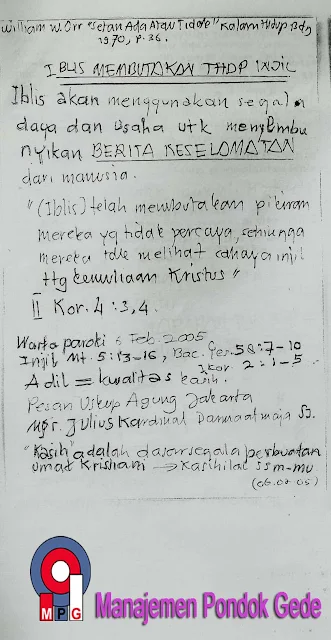 William W. Orr "Setan Ada Atau Tidak" Kalam Hidup Bdg
1970, p. 36.
IBLIS MEMBUTAKAN THDP INJIL
Iblis akan menggunakan segala
daya dan usaha utk menyembu
nyikan BERITA KESELAMATAN
dari manusia.
"(Iblis) telah membutakan pikiran
mereka yg tidak percaya, sehingga
mereka tdk melihat cahaya injil
ttg kemuliaan Kristus"
II Kor. 4:3,4.
Warta paroki 6 Feb. 2005
Injil Mt. 5:13-16, Bac. Yes. 58:7-10
I Kor. 2:1-5.
Adil = kwalitas kasih.
Pesan Uskup Agung Jakarta
Mgr. Julius Kardinal Darmaatmaja SJ.
"Kasih" adalah dasar segala perbuatan
umat Kristiani → kasihilah ssm-mu
(06.02.05)
MPG
Manajemen Pondok Gede